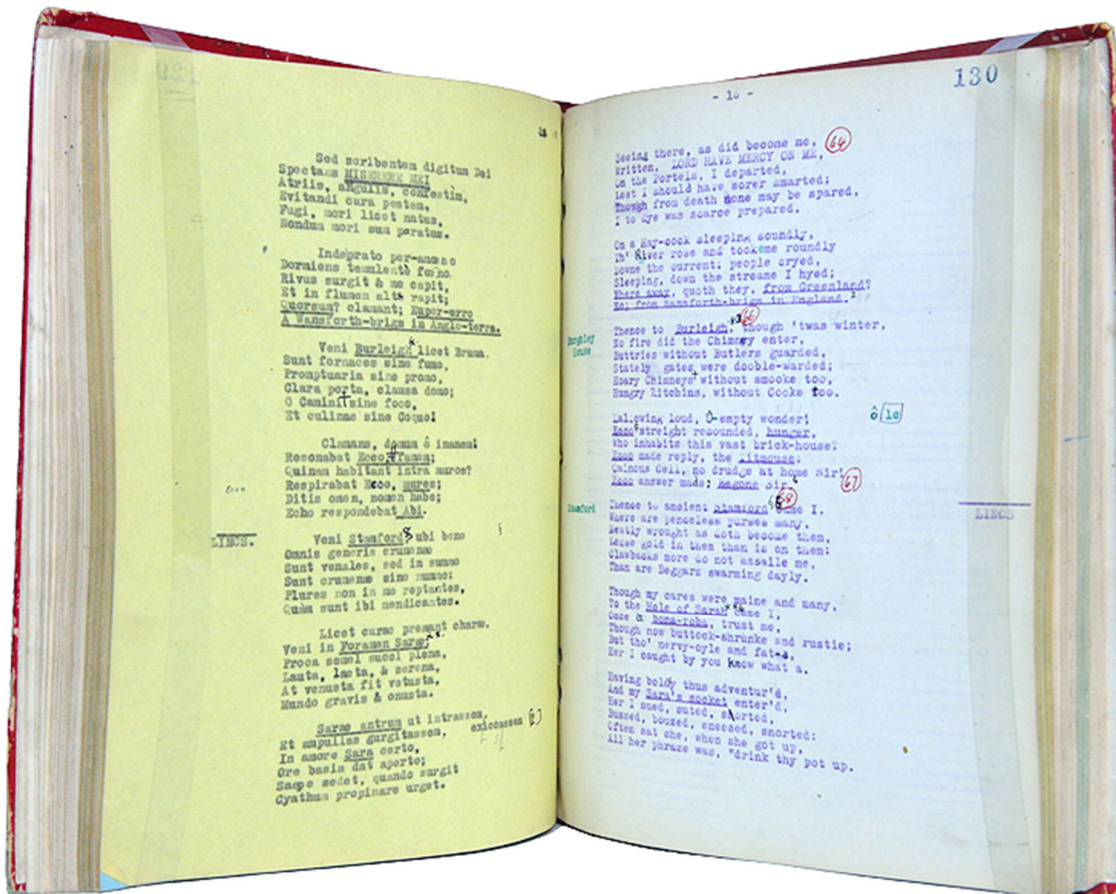 Sed scribentem digitum Dei
Spectans MISERERE MEI
Atriis, angulis, confestim,
Evitandi cura pestem,
Fugi, mori licet natus,
Nondum mori sum paratus.
Indè prato per-amœno
Dormiens temulentè fœno,
Rivus surgit & me capit,
Et in flumen altè rapit;
Quorsum? clamant; Nuper erro
A Wansforth-brigs in Anglo-terra.
Veni Burleigh licet Bruma.
Sunt fornaces sine fumo,
Promptuaria sine promo,
Clara porta, clausa domo;
O Camini sine foco,
Et culinae sine Coquo!
Clamans, domum ô inanem!
Resonabat Ecco, famem;
Quinam habitant intra muros?
Respirabat Ecco, mures;
Ditis omen, nomen habe;
Echo respondebat, Abi.
Ecco
LINCS.
Veni Stamford, ubi bene
Omnis generis crumenæ
Sunt venales, sed in summo
Sunt crumenæ sine nummo:
Plures non in me reptantes,
Quàm sunt ibi mendicantes.
Licet curae premant charae,
Veni in Foramen Sarae;
Proca semel succi plena,
Lauta, laeta, & serena,
At venusta fit vetusta,
Mundo gravis & onusta.
Sarae antrum ut intrassem,
Et ampullas gurgitassem, exiccassem [2]
In amore Sara certo,
Ore basia dat aperto;
Saepe sedet, quando surgit
Cyathum propinare urget.
130
Seeing there, as did become me, 64
Written, LORD HAVE MERCY ON ME,
On the Portels, I departed,
Lest I should have sorer smarted;
Though from death none may be spared,
I to dye was scarce prepared.
On a Hay-cock sleeping soundly,
Th' River rose and tooke me roundly
Downe the current: people cryed,
Sleeping, down the streame I hyed;
Where away, quoth they, from Greenland?
No; from Wansforth-brigs in England.
Burghley House
Thence to Burleigh, though 'twas winter, 66
No fire did the Chimney enter,
Buttries without Butlers guarded,
Stately gates were dooble-warded;
Hoary Chimneys without smooke too,
Hungry Kitchins, without Cooke too.
Hallowing loud, O empty wonder! ô/le
Ecco streight resounded, hunger,
Who inhabits this vast brick-house?
Ecco made reply, the Titmouse;
Ominous Cell, no drudge at home Sir!
Ecco answer made; Begone Sir. 67
Stamford
Thence to ancient Stamford came I, 68
Where are penceless purses many,
Neatly wrought as doth become them,
Lesse gold in them than is on them;
Clawbacks more do not assaile me,
Than are Beggars swarming dayly.
LINCS
Though my cares were maine and many,
To the Hole of Sarah came I,
Once a bona-roba, trust me,
Though now buttock-shrunke and rustie;
But tho' nervy-oyle and fat-a,
Her I caught by you know what a.
Having boldy thus adventur'd,
And my Sara's socket enter'd,
Her I sued, suted, sorted,
Bussed, bouzed, sneesed, snorted:
Often sat she, when she got up,
All her phraze was, "drink thy pot up.